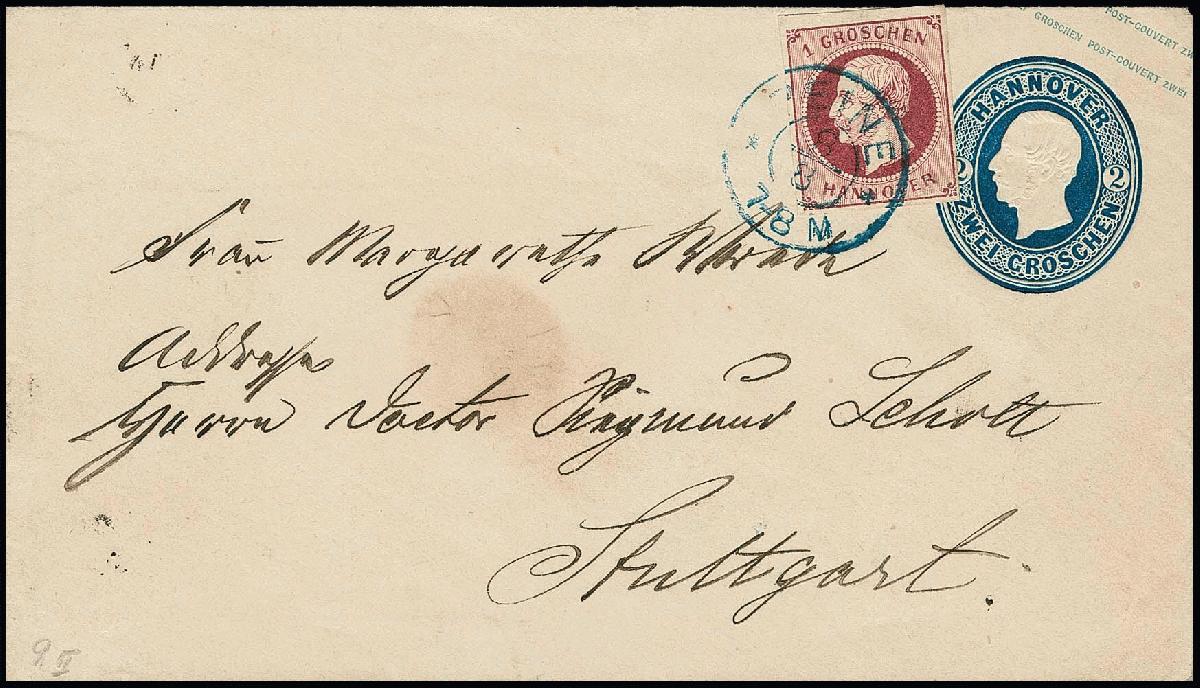 POST-COUVERT ZWEI
GROSCHEN POST-COUVERT ZWEI
1 GROSCHEN
HANNOVER
HANNOVER
2 2
ZWEI GROSCHEN
* EINE *
8
8
7-8 M
Frau Margarethe
Addresse
Herrn Doctor Siegmund Schott
Stuttgart.
9 II